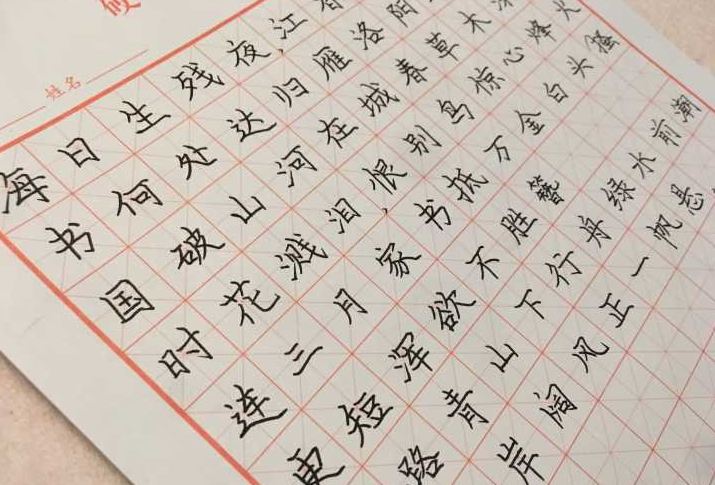 姓名
海日生残夜,江春
书何处达归雁洛阳
国破山河在城春草木深
时花溅泪,恨别鸟惊心烽火
连三月家书抵万金白头搔
更短浑欲不胜簪
路青山下行舟绿水前潮
岸阔风正一帆悬